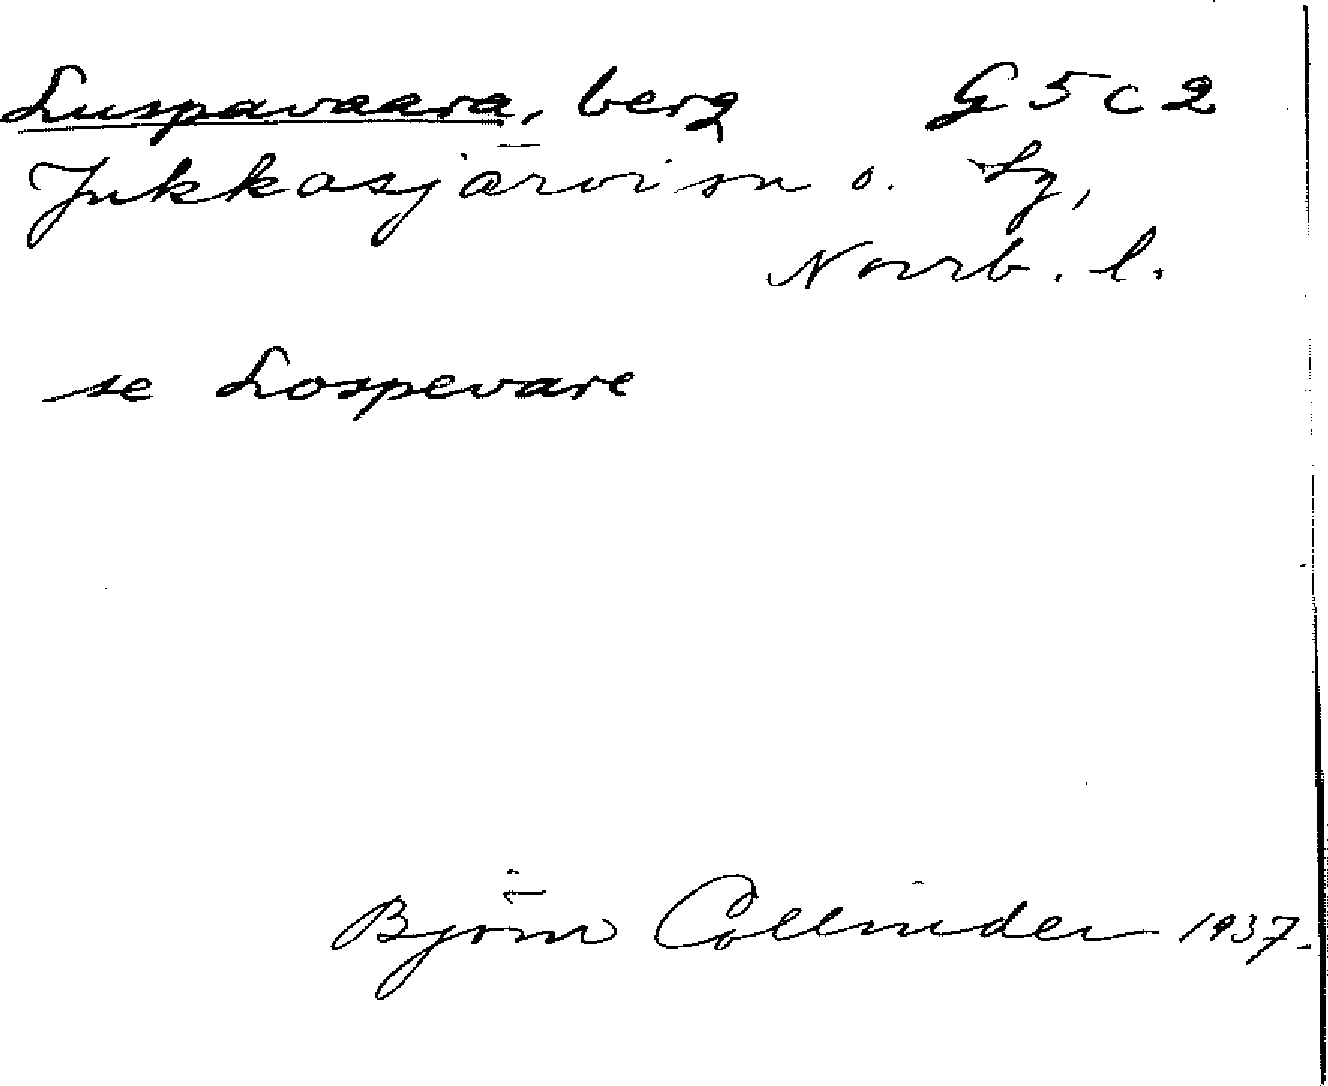 Luspavaara, berg G5c2
Jukkasjärvi sn o. Lg,
Norrb. l.
se Lospevare
Björn Collinder 1937.